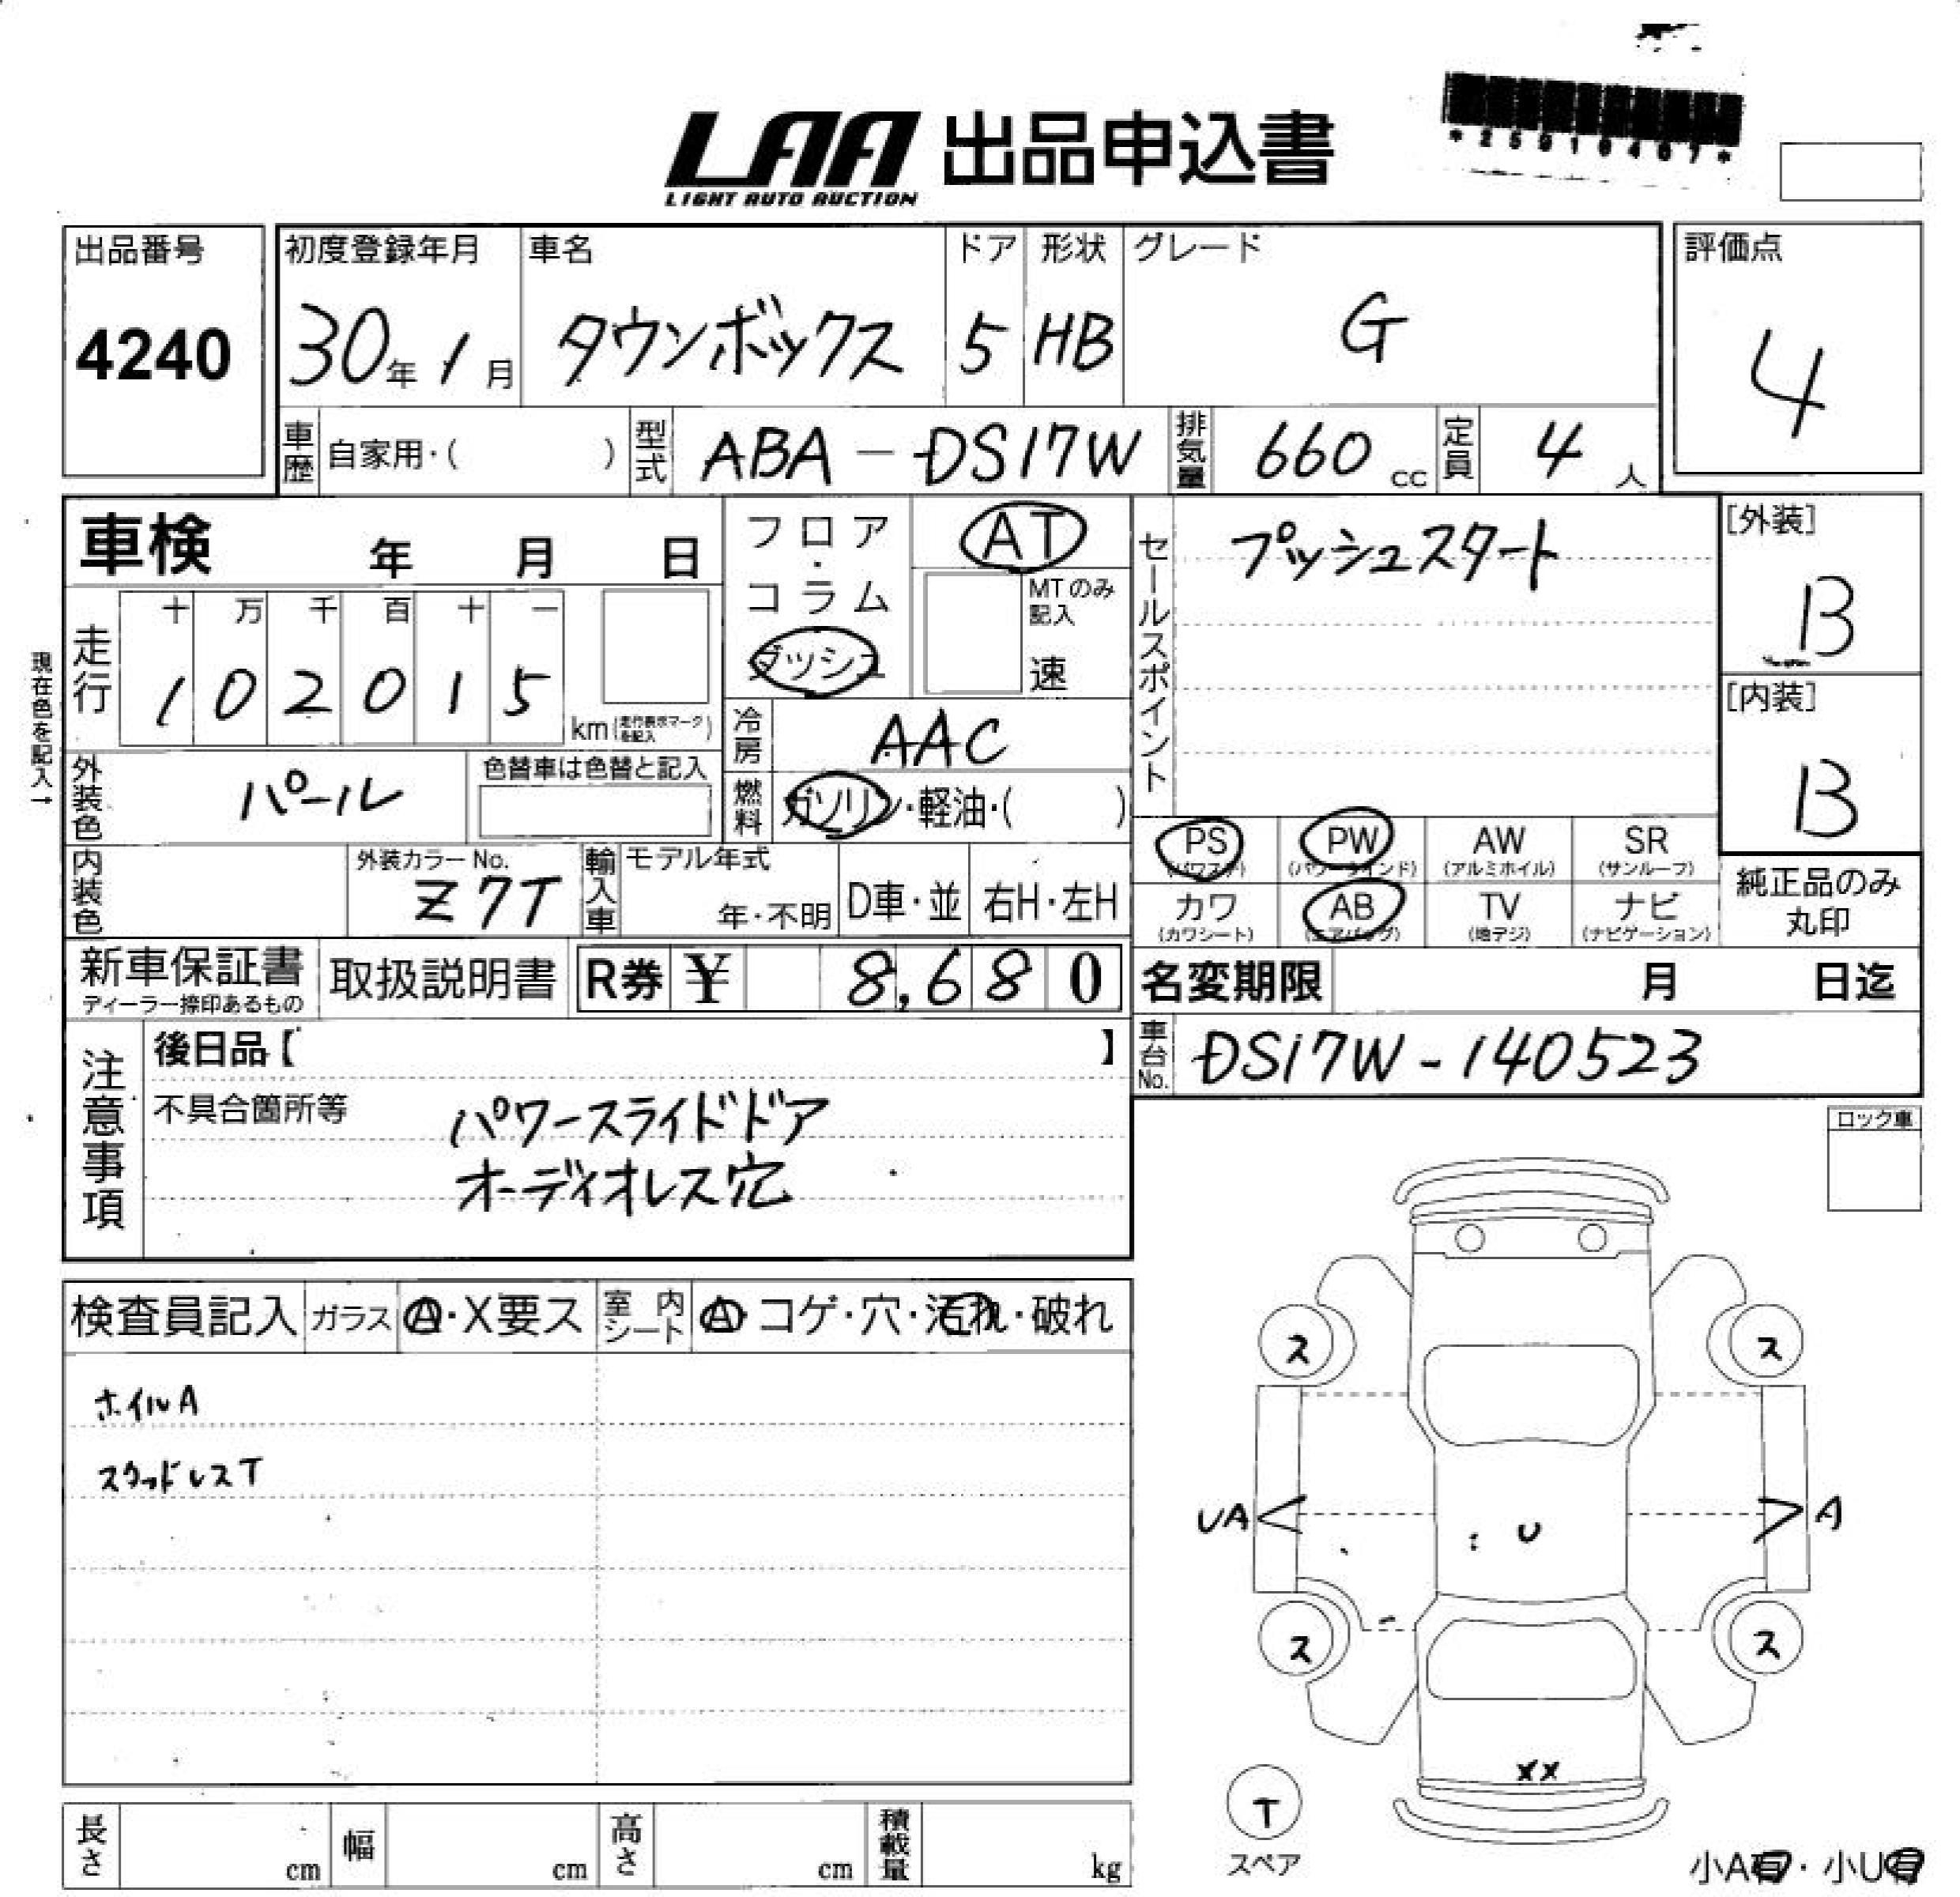 *25910467*
LAA 出品申込書
LIGHT AUTO AUCTION
出品番号 初度登録年月 車名 ドア 形状 グレード 評価点
4240 30年1月 タウンボックス 5 HB G 4
車歴 自家用・( ) 型式 ABA-DS17W 排気量 660 cc 定員 4 人
車検 年 月 日 フロア・コラム ダッシュ AT MTのみ記入 速
セールスポイント プッシュスタート
[外装] B
現在色を記入→
走行 十 万 千 百 十 一
1 0 2 0 1 5 km (走行表示マークを記入)
冷房 AAC
[内装] B
外装色 パール 色替車は色替と記入
燃料 ガソリン・軽油・( )
PS (パワステ) PW (パワーウインド) AW (アルミホイル) SR (サンルーフ)
内装色 外装カラーNo. Z7T 輸入車 モデル年式 年・不明 D車・並 右H・左H
カワ (カワシート) AB (エアバッグ) TV (地デジ) ナビ (ナビゲーション)
純正品のみ
丸印
新車保証書 ディーラー捺印あるもの 取扱説明書 R券 ¥ 8,680 名変期限 月 日迄
注意事項 後日品【 】
車台No. DS17W-140523
不具合箇所等 パワースライドドア
オーディオレス穴
ロック車
検査員記入 ガラス A・X要ス 室内シート A・コゲ・穴・汚れ・破れ
ホイルA
スタッドレスT
ス ス
UA U A
ス ス
XX
T
スペア
長さ cm 幅 cm 高さ cm 積載量 kg
小A有・小U有